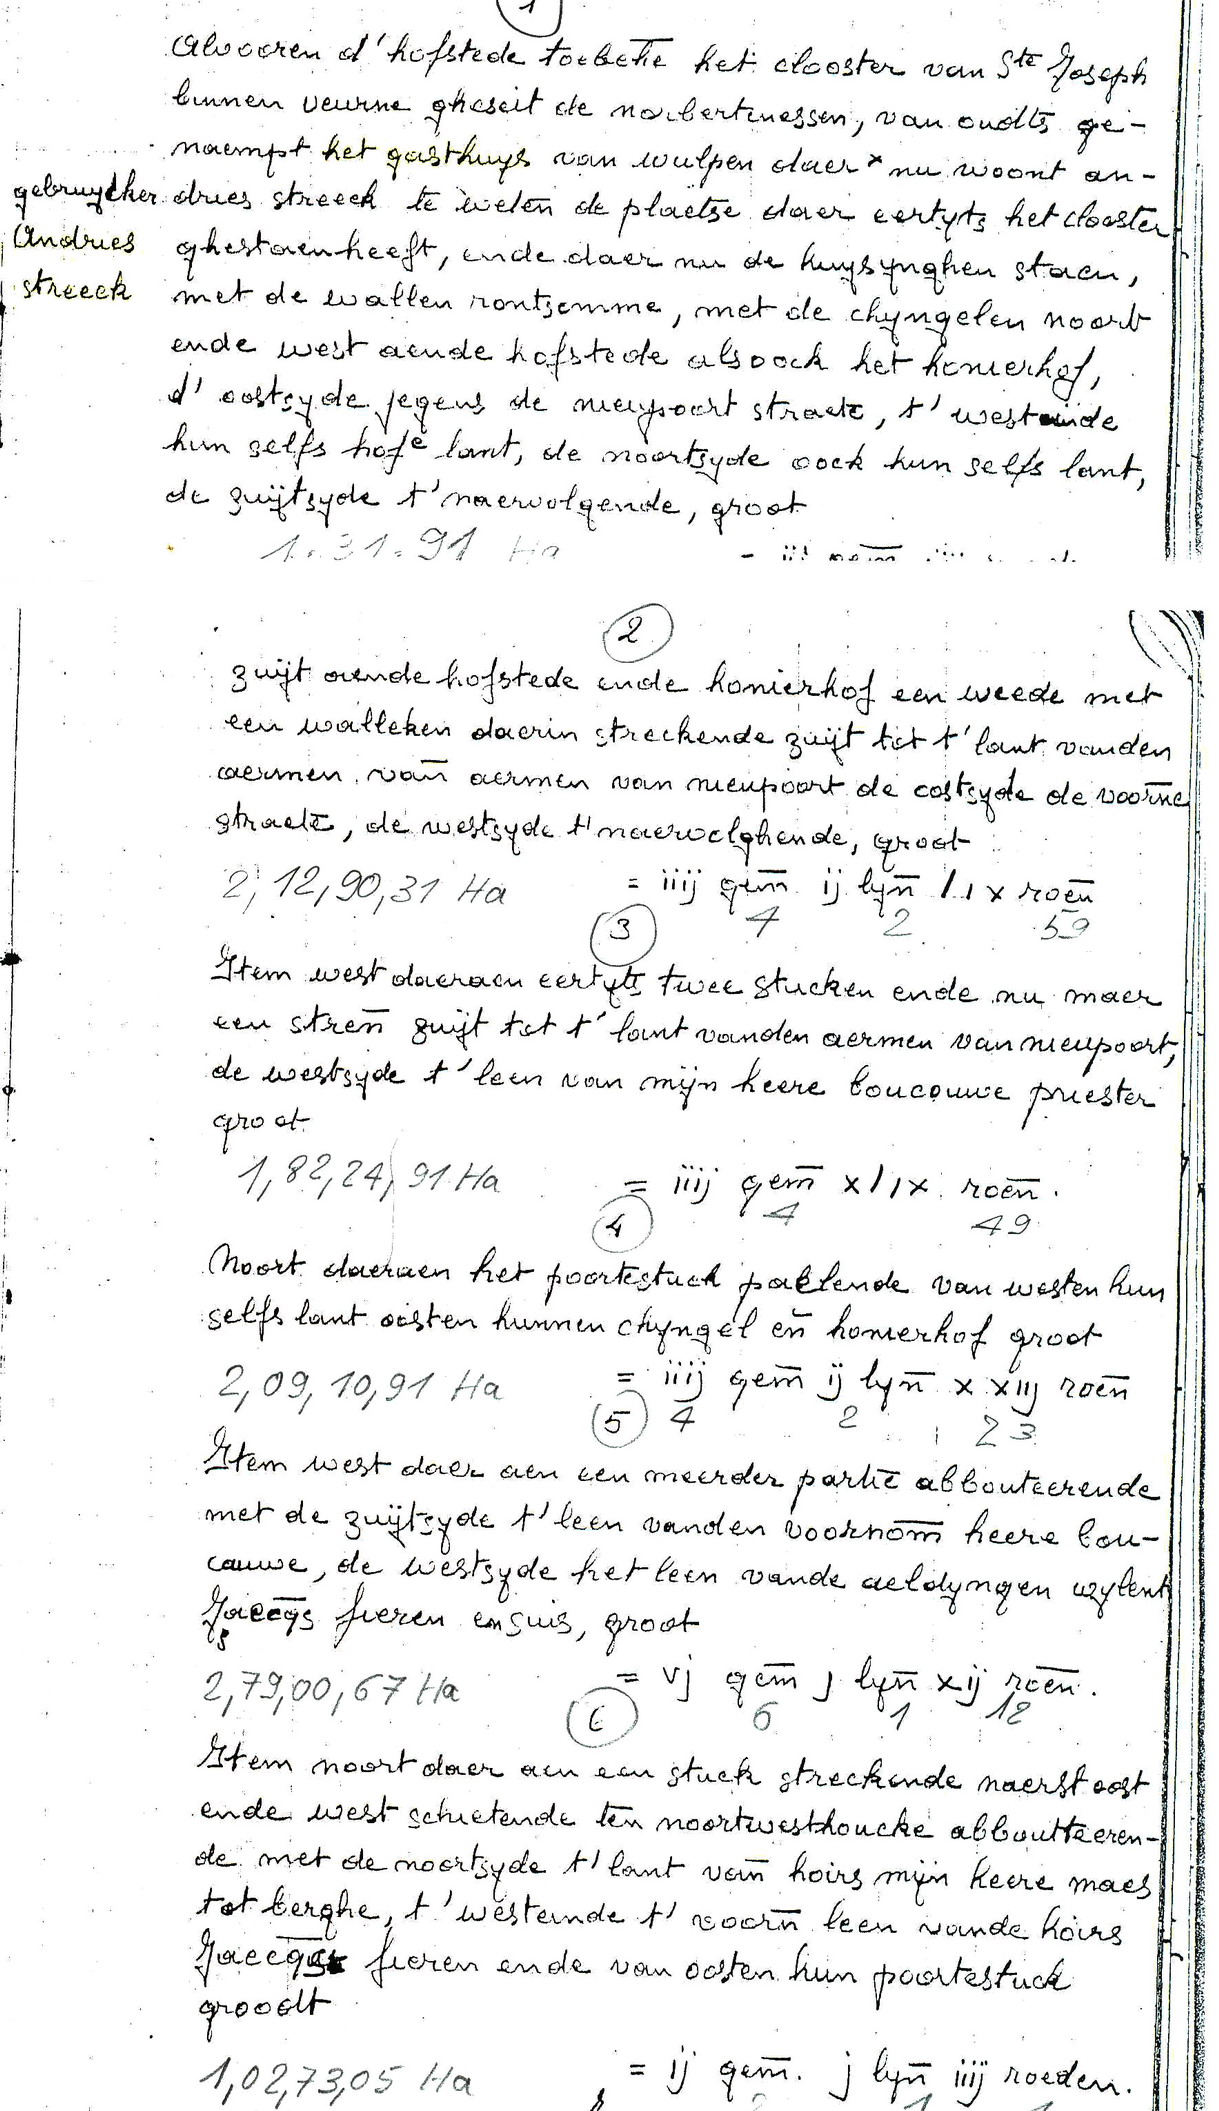 1
Alvooren d'hofstede toebeh̄e het clooster van Ste Joseph
binnen veurne gheseit de norbertinessen, van oudts ge-
naempt het gasthuys van wulpen daer x nu woont an-
gebruycker dries streeck te weten de plaetse daer eertyts het clooster
Andries ghestaen heeft, ende daer nu de huysynghen staen,
streeck met de wallen rontsomme, met de chyngelen noort
ende west aende hofstede alsoock het konierhof,
d'oostsyde jegens de nieupoort straete, t'westeinde
hun selfs hofe lant, de noortsyde oock hun selfs lant,
de zuijtsyde t'naervolgende, groot
1.31.91 Ha
2
zuijt aende hofstede ende konierhof een weede met
een walleken daerin streckende zuijt tot t'lant vanden
aermen van̄ aermen van nieupoort de oostsyde de voorn̄e
straete, de westsyde t'naervolghende, groot
2,12,90,31 Ha = iiij gem̄ ij lyn̄ lix roen̄
4 2 59
3
Item west daeraen eertyts twee stucken ende nu maer
een stren̄ zuijt tot t'lant vanden aermen van nieupoort,
de westsyde t'leen van mijn heere boucouwe priester
groot
1,82,24,91 Ha = iiij gem̄ xlix roen̄.
4 49
4
Noort daeraen het poortestuck paelende van westen hun
selfs lant oosten hunnen chyngel en̄ konierhof groot
2,09,10,91 Ha = iiij gem̄ ij lyn̄ x xiij roen̄
4 2 23
5
Item west daer aen een meerder partie abbouteerende
met de zuijtsyde t'leen vanden voornom̄ heere bou-
cauwe, de westsyde het leen vande aeldyngen wylent
Jaecq̄s fieren ensuis, groot
2,79,00,67 Ha = vj gem̄ j lyn̄ xij roen̄.
6 1 12
6
Item noort daer aen een stuck streckende naerst oost
ende west schietende ten noortwesthoucke abboutteeren-
de met de noortsyde t'lant van̄ hoirs mijn heere maes
tot berghe, t'westeinde t'voorn̄ leen vande hoirs
Jaecq̄s fieren ende van oosten hun poortestuck
groodt
1,02,73,05 Ha = ij gem̄. j lyn̄ iiij roeden.